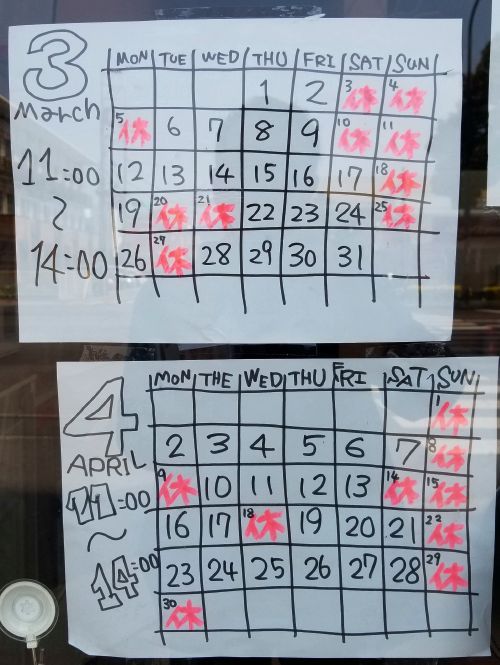 3
March
11:00
~
14:00
MON TUE WED THU FRI SAT SUN
1 2 3 休 4 休
5 休 6 7 8 9 10 休 11 休
12 13 14 15 16 17 18 休
19 20 休 21 休 22 23 24 25 休
26 27 休 28 29 30 31
4
APRIL
11:00
~
14:00
MON THE WED THU FRI SAT SUN
1 休
2 3 4 5 6 7 8 休
9 休 10 11 12 13 14 休 15 休
16 17 18 休 19 20 21 22 休
23 24 25 26 27 28 29 休
30 休